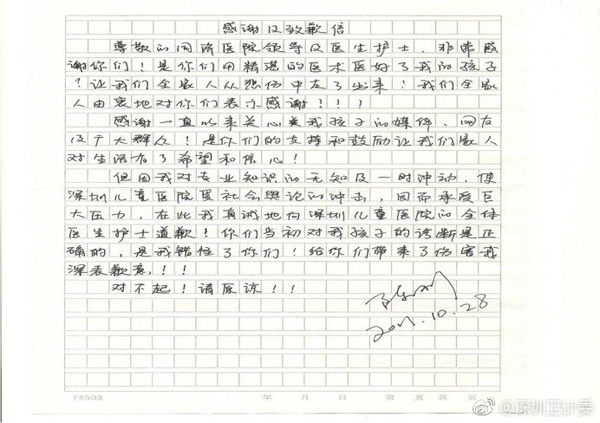 感谢及致歉信
尊敬的同济医院领导及医生护士，非常感
谢你们！是你们用精湛的医术医好了我的孩子
？让我们全家人从悲伤中走了出来！我们全家
人由衷地对你们表示感谢！！！
感谢一直以来关心关我孩子的媒体、网友
及广大群众！是你们的支持和鼓励让我们家人
对生活有了希望和信心！
但因我对专业知识的无知及一时冲动，使
深圳儿童医院受社会舆论的冲击，因而承受巨
大压力，在此我真诚地向深圳儿童医院的全体
医生护士道歉！你们当初对我孩子的诊断是正
确的，是我错怪了你们！给你们带来了伤害我
深表歉意！！！
对不起！请原谅！！！
10.28
F8503 年 月 日 第 页 共 页
@深圳卫计委